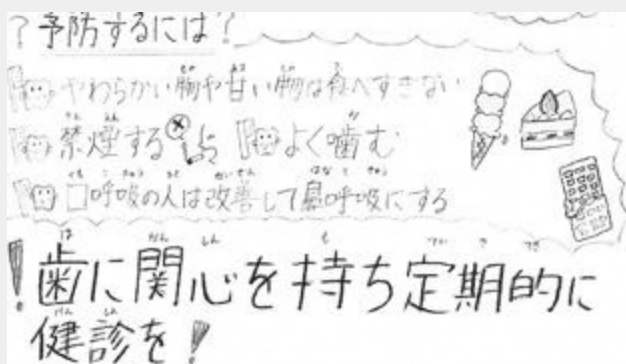 ?予防するには?
やわらかい物や甘い物は食べすぎない
禁煙する よく噛む
口呼吸の人は改善して鼻呼吸にする
!歯に関心を持ち定期的に
健診を!